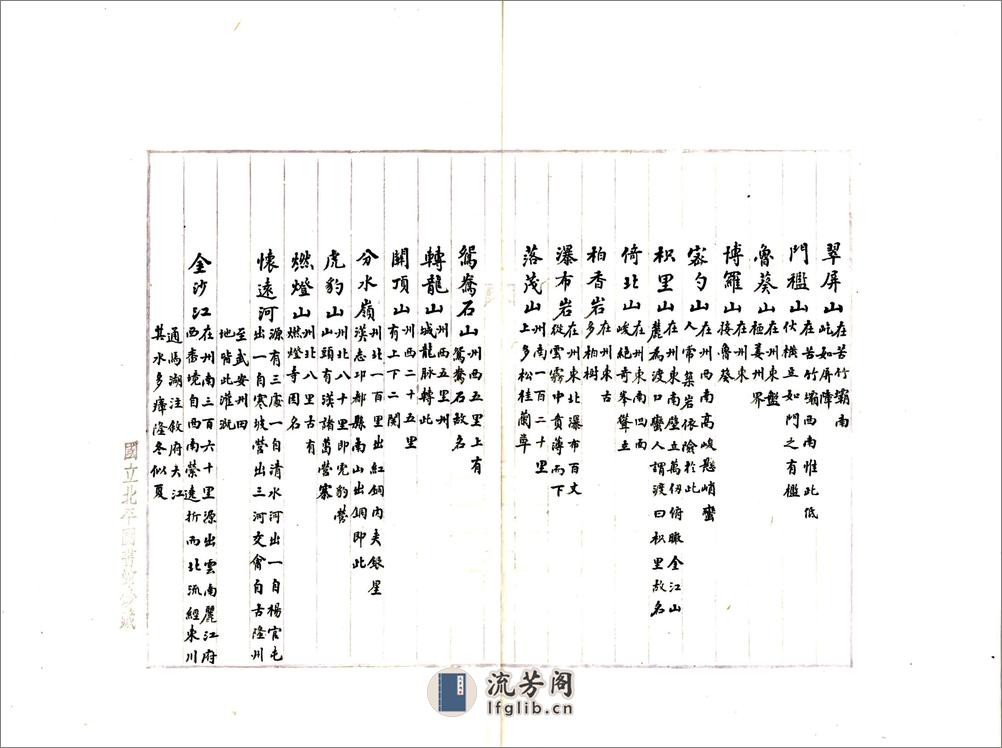 翠屏山在苦竹壩南屹如屏障
門檻山在苦竹壩西南惟此低伏橫立如門之有檻
魯葵山在州東盤極姜州界
博羅山在州東接魯葵
宓勺山在州西南高峻懸峭蠻人常集岩依險於此
枳里山在州東南壁立萬仞俯瞰金江山麓為渡口蠻人謂渡曰枳里故名
倚北山在州東南凹西峻絕奇峯聳立
柏香岩在州東古多柏樹
瀑布岩在州東北瀑布百丈從雲霧中賁薄而下
落茂山州南一百二十里上多松桂蘭草
鴛鴦石山州西五里上有鴛鴦石故名
轉龍山州西五里州城龍脉轉此
關頂山州西二十五里有上下二関
分水嶺州北一百里出紅銅內夾銀星漢志邛都縣南山出銅即此
虎豹山州北八十里即虎豹營山頭有漢諸葛營寨
燃燈山州北八里古有燃燈寺因名
懷遠河源有三處一自清水河出一自楊官屯出一自寒坡營出三河交會自古隆州
至武安州田地皆此灌溉
金沙江在州南三百六十里源出雲南麗江府西番境自西南縈遶折而北流經東川
通馬湖注敘府大江其水多瘴隆冬似夏
國立北平圖書館藏
流芳阁
lfglib.cn